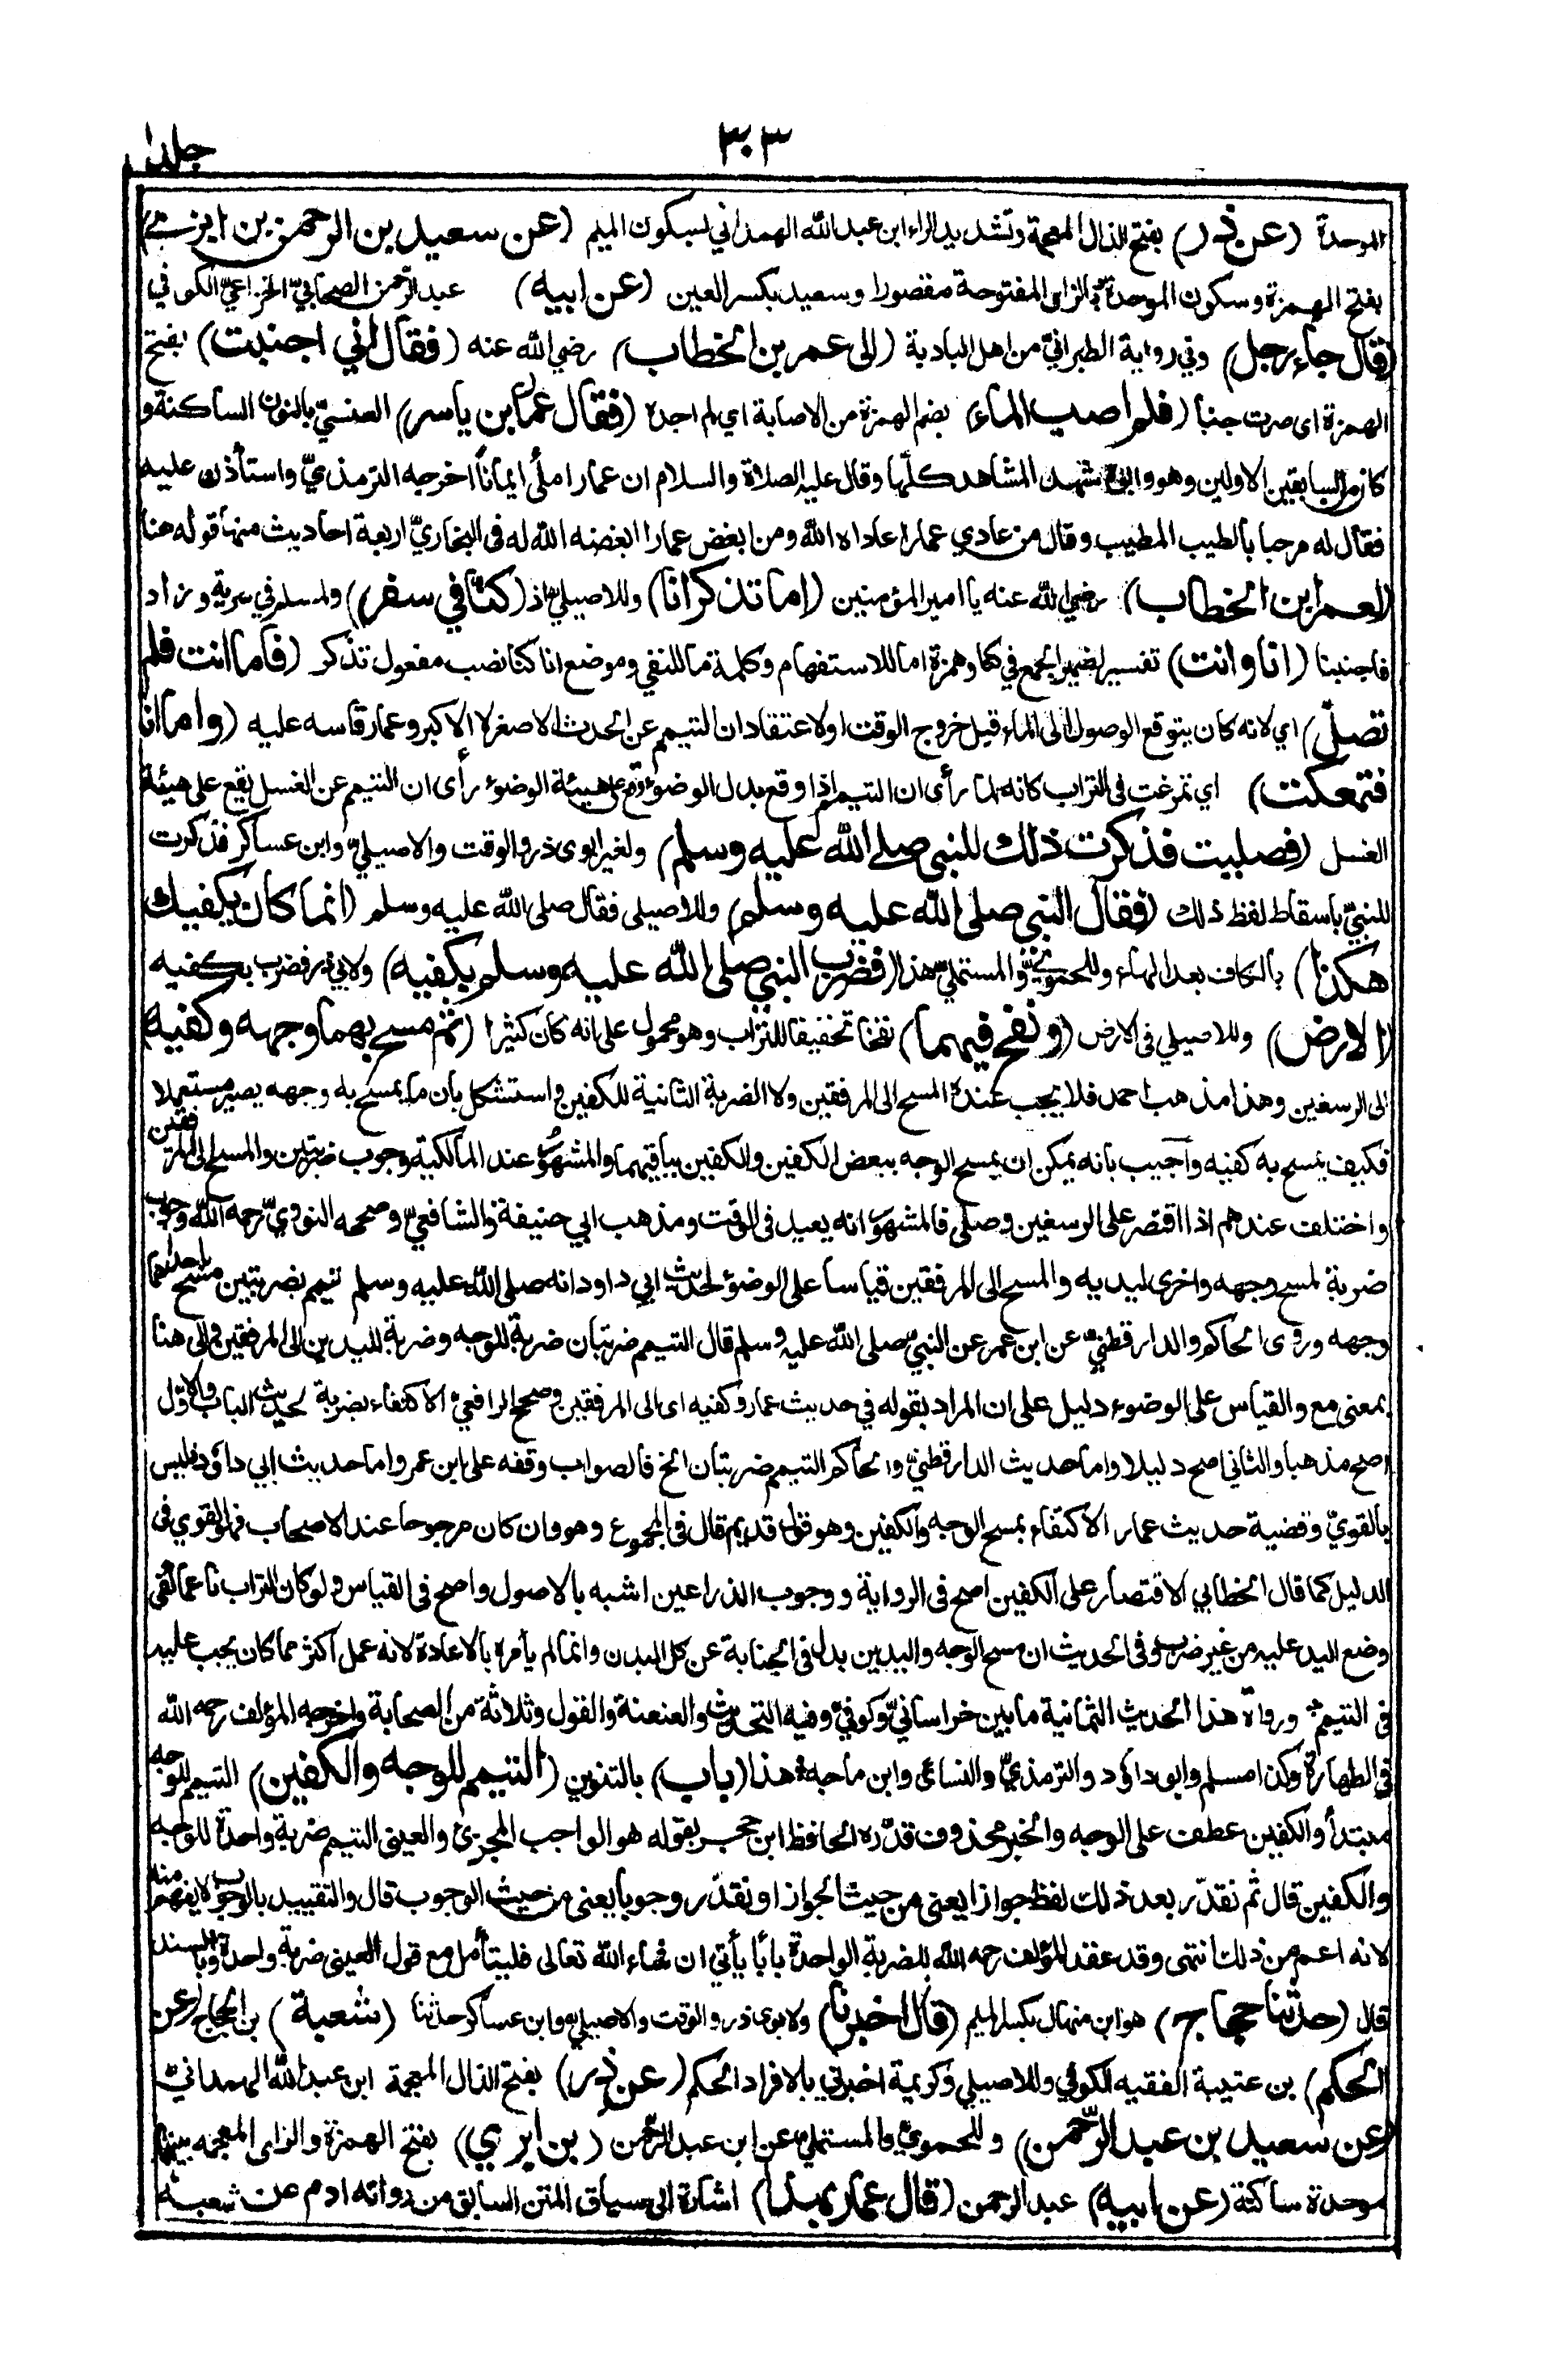 ٣٠٣
جلد١
الموحدة (عن ذر) بفتح الذال المعجمة وتشديد الراء ابن عبد الله الهمداني بسكون الميم (عن سعيد بن الرحمن بن ابزى)
بفتح الهمزة وسكون الموحدة بالزاى المفتوحة مقصورا وسعيد بكسر العين (عن ابيه) عبد الرحمن الصحابيّ الخزاعيّ الكوفي
(قال جاء رجل) وفي رواية الطبرانيّ من اهل البادية (الى عمر بن الخطاب) رضي الله عنه (فقال اني اجنبت) بفتح
الهمزة اى صرت جنبا (فلم اصب الماء) بضم الهمزة من الاصابة اي لم اجده (فقال عمار بن ياسر) العنسيّ بالنون الساكنة و
كان من السابقين الاولين وهو وابوه شهد المشاهد كلّها وقال عليه الصلاة والسلام ان عمارا ملئ ايمانًا اخرجه الترمذيّ واستأذن عليه
فقال له مرحبا بالطيب المطيب وقال من عادي عمارا عاداه الله ومن ابغض عمارا ابغضه الله له فى البخاريّ اربعة احاديث منها قوله هنا
(لعمر ابن الخطاب) رضي الله عنه يا امير المؤمنين (اما تذكر انا) وللاصيليّ اذ (كنّا في سفر) ولمسلم في سرية وزاد
فاجنبنا (انا وانت) تفسير لضمير الجمع في كنا وهمزة اما للاستفهام وكلمة ما للنفي وموضع انا كنا نصب مفعول تذكر (فاما انت فلم
تصلّ) اي لانه كان يتوقع الوصول الى الماء قبل خروج الوقت او لاعتقاد ان التيمم عن الحدث الاصغر لا الاكبر وعمار قاسه عليه (واما انا
فتمعكت) اي تمرغت فى التراب كانه لما رأى ان التيمم اذا وقع بدل الوضوء وقع على هيئة الوضوء رأى ان التيمم عن الغسل يقع على هيئة
الغسل (فصليت فذكرت ذلك للنبي صلى الله عليه وسلم) ولغير ابوى ذر والوقت والاصيليّ وابن عساكر فذكرت
للنبيّ باسقاط لفظ ذلك (فقال النبي صلى الله عليه وسلم) وللاصيلى فقال صلى الله عليه وسلم (انما كان يكفيك
هكذا) بالكاف بعد الهاء وللحمويّ والمستمليّ هذا (فضرب النبي صلى الله عليه وسلم بكفيه) ولابي ذر فضرب بكفيه
(الارض) وللاصيلي فى الارض (ونفخ فيهما) نفخا تخفيفا للتراب وهو محمول على انه كان كثيرا (ثم مسح بهما وجهه وكفيه)
الى الرسغين وهذا مذهب احمد فلا يجب عنده المسح الى المرفقين ولا الضربة الثانية للكفين واستشكل بان ما يمسح به وجهه يصير مستعملا
فكيف يمسح به كفيه واجيب بانه يمكن ان يمسح الوجه ببعض الكفين والكفين بباقيهما والمشهور عند المالكية وجوب ضربتين والمسح الى المرفقين
واختلف عندهم اذا اقتصر على الرسغين وصلى فالمشهور انه يعيد فى الوقت ومذهب ابي حنيفة والشافعيّ وصححه النوويّ رحمه الله وجوب
ضربة لمسح وجهه واخرى ليديه والمسح الى المرفقين قياسا على الوضوء لحديث ابي داود انه صلى الله عليه وسلم تيمم بضربتين مسح باحداهما
وجهه وروى الحاكم والدارقطنيّ عن ابن عمر عن النبيّ صلى الله عليه وسلم قال التيمم ضربتان ضربة للوجه وضربة لليدين الى المرفقين والى هنا
بمعنى مع والقياس على الوضوء دليل على ان المراد بقوله في حديث عمار وكفيه اى الى المرفقين وصحح الرافعيّ الاكتفاء بضربة لحديث الباب والاوّل
اصح مذهبا والثاني اصح دليلا واما حديث الدارقطنيّ والحاكم التيمم ضربتان الخ فالصواب وقفه على ابن عمر واما حديث ابي داؤد فليس
بالقويّ وقضية حديث عمار الاكتفاء بمسح الوجه والكفين وهو قول قديم قال فى المجموع وهو وان كان مرجوحا عند الاصحاب فهو القوي فى
الدليل كما قال الخطابي الاقتصار على الكفين اصح فى الرواية ووجوب الذراعين اشبه بالاصول واصح فى القياس ولو كان التراب ناعما كفى
وضع اليد عليه من غير ضرب وفى الحديث ان مسح الوجه واليدين بدل فى الجنابة عن كل البدن وانما لم يأمره بالاعادة لانه عمل اكثر مما كان يجب عليه
فى التيمم ورواة هذا الحديث الثمانية ما بين خراسانيّ وكوفيّ وفيه التحديث والعنعنة والقول وثلاثة من الصحابة واخرجه المؤلف رحمه الله
في الطهارة وكذا مسلم وابو داؤد والترمذيّ والنسائى وابن ماجه هذا (باب) بالتنوين (التيمم للوجه والكفين) التيمم للوجه
مبتدأ والكفين عطف على الوجه والخبر محذوف قدّره الحافظ ابن حجر بقوله هو الواجب المجزئ والعينى التيمم ضربة واحدة للوجه
والكفين قال ثم نقدّر بعد ذلك لفظ جوازا يعنى من حيث الجواز او نقدّر وجوبا يعنى من حيث الوجوب قال والتقييد بالوجوب لا يفهم منه
لانه اعم من ذلك انتهى وقد عقد المؤلف رحمه الله للضربة الواحدة بابًا يأتي ان شاء الله تعالى فليتأمل مع قول العينى ضربة واحدة وبالسند
قال (حدثنا حجاج) هو ابن منهال بكسر الميم (قال اخبرنا) ولابوى ذر والوقت والاصيليّ وابن عساكر حدثنا (شعبة) بن الحجاج (عن
الحكم) بن عتيبة الفقيه الكوفي وللاصيلي وكريمة اخبرني بالافراد الحكم (عن ذر) بفتح الذال المعجمة ابن عبد الله الهمدانيّ
(عن سعيد بن عبد الرّحمن) وللحمويّ والمستمليّ عن ابن عبد الرّحمن (بن ابزي) بفتح الهمزة والزاى المعجمه بينهما
موحدة ساكنة (عن ابيه) عبد الرحمن (قال عمار بهذا) اشارة الى سياق المتن السابق من رواته ادم عن شعبة